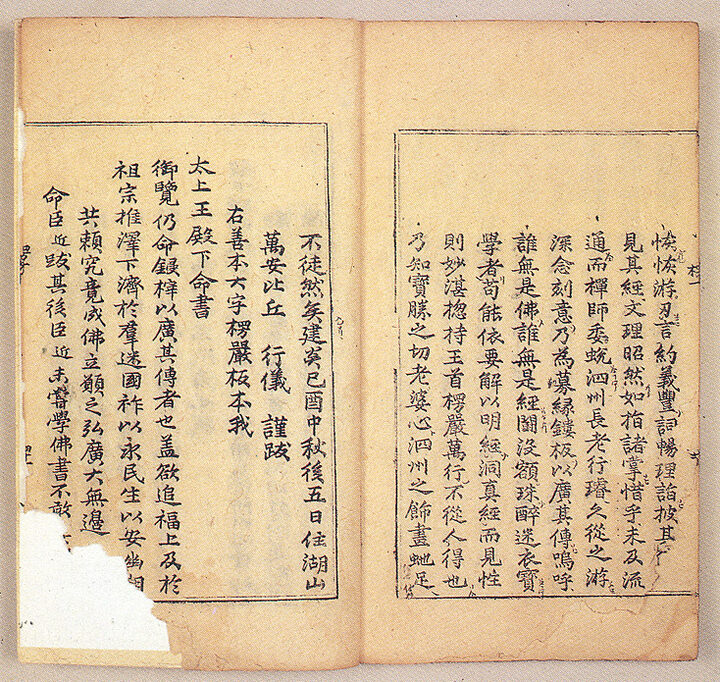 恢恢游刃言約義豐詞暢理詣披其
見其經文理昭然如指諸掌惜乎未及流
通而禪師委蛻泗州長老行璿久從之游
深念刻意乃為募緣鏤板以廣其傳嗚呼
誰無是佛誰無是經闇沒額珠醉迷衣寶
學者苟能依要解以明經洞真經而見性
則妙湛揔持王首楞嚴萬行不從人得也
乃知寶勝之切老婆心泗州之飾畫虵足
不徒然矣建炎己酉中秋後五日住湖山
萬安比丘 行儀 謹跋
右善本大字楞嚴板本我
太上王殿下命書
御覽仍命鋟梓以廣其傳者也盖欲追福上及於
祖宗推澤下濟於羣迷國祚以永民生以安幽明
共賴究竟成佛立願之弘廣大無邊
命臣近跋其後臣近未嘗學佛書不敢